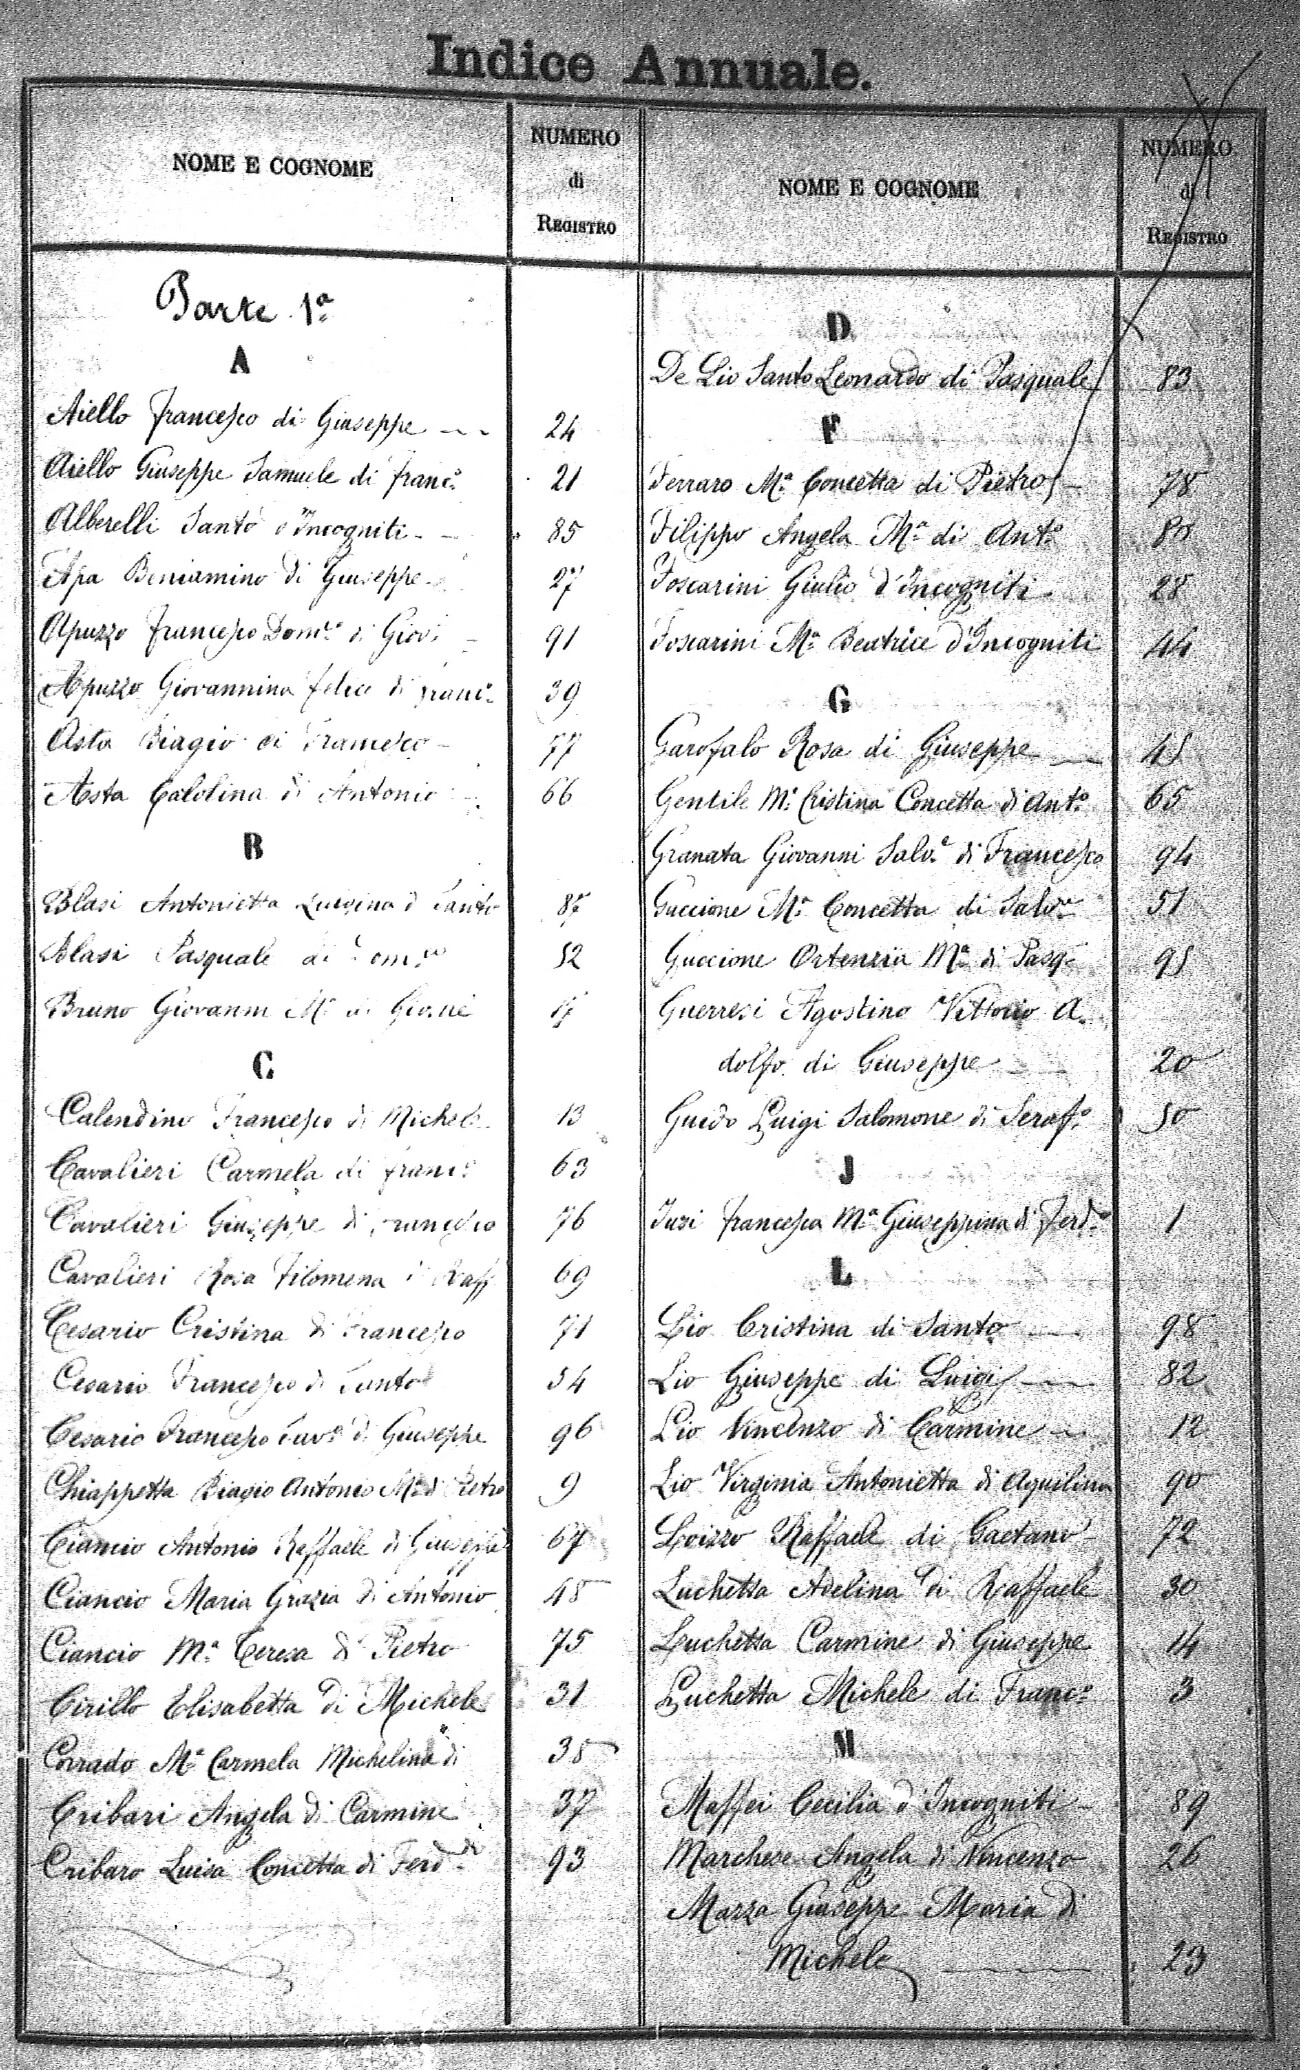 Indice Annuale.
NOME E COGNOME
NUMERO
di
REGISTRO
Parte 1ª
A
Aiello Francesco di Giuseppe 24
Aiello Giuseppe Samuele di Franc.º 21
Alberelli Santo d'Incogniti 85
Apa Beniamino di Giuseppe 27
Apuzzo Francesco Dom.co di Giov.i 91
Apuzzo Giovannina Felice di Franc.º 39
Asta Biagio di Francesco 77
Asta Carolina di Antonio 66
B
Blasi Antonietta Luigina di Santo 87
Blasi Pasquale di 52
Bruno Giovanni M.ª di
C
Calendino Francesco di Michele 13
Cavalieri Carmela di Franc.º 63
Cavalieri Giuseppe di Francesco 76
Cavalieri Rosa Filomena di Raff 69
Cesario Cristina di Francesco 71
Cesario Francesco di Santo 54
Cesario Francesco Sav.º di Giuseppe 96
Chiappetta Biagio Antonio M.ª di Pietro 9
Ciancio Antonio Raffaele di Giuseppe 67
Ciancio Maria Grazia di Antonio 48
Ciancio M.ª Teresa di Pietro 75
Cirillo Elisabetta di Michele 31
Corrado M.ª Carmela Michelina di 35
Cribari Angela di Carmine 37
Cribaro Luisa Concetta di Ferd.do 93
NOME E COGNOME
NUMERO
di
REGISTRO
D
De Lio Santo Leonardo di Pasquale 83
F
Ferraro M.ª Concetta di Pietro 78
Filippo Angela M.ª di Ant.º
Foscarini Giulio d'Incogniti 28
Foscarini M.ª Beatrice d'Incogniti 44
G
Garofalo Rosa di Giuseppe 45
Gentile M.ª Cristina Concetta di Ant.º 65
Granata Giovanni Salv.e di Francesco 94
Guccione M.ª Concetta di Salv.re 51
Guccione Ortenzia M.ª di Pasq.e 95
Guerresi Agostino Vittorio A.
dolfo di Giuseppe 20
Guido Luigi Salomone di Seraf.º 50
J
Iusi Francesca M.ª Giuseppina di Ferd.º 1
L
Lio Cristina di Santo 98
Lio Giuseppe di Luigi 82
Lio Vincenzo di Carmine 12
Lio Virginia Antonietta di Aquilina 90
Loizzo Raffaele di Gaetano 72
Luchetta Adelina di Raffaele 30
Luchetta Carmine di Giuseppe 14
Luchetta Michele di Franc.º 3
M
Maffei Cecilia d'Incogniti 89
Marchese Angela di Vincenzo 26
Mazza Giuseppe Maria di
Michele 23